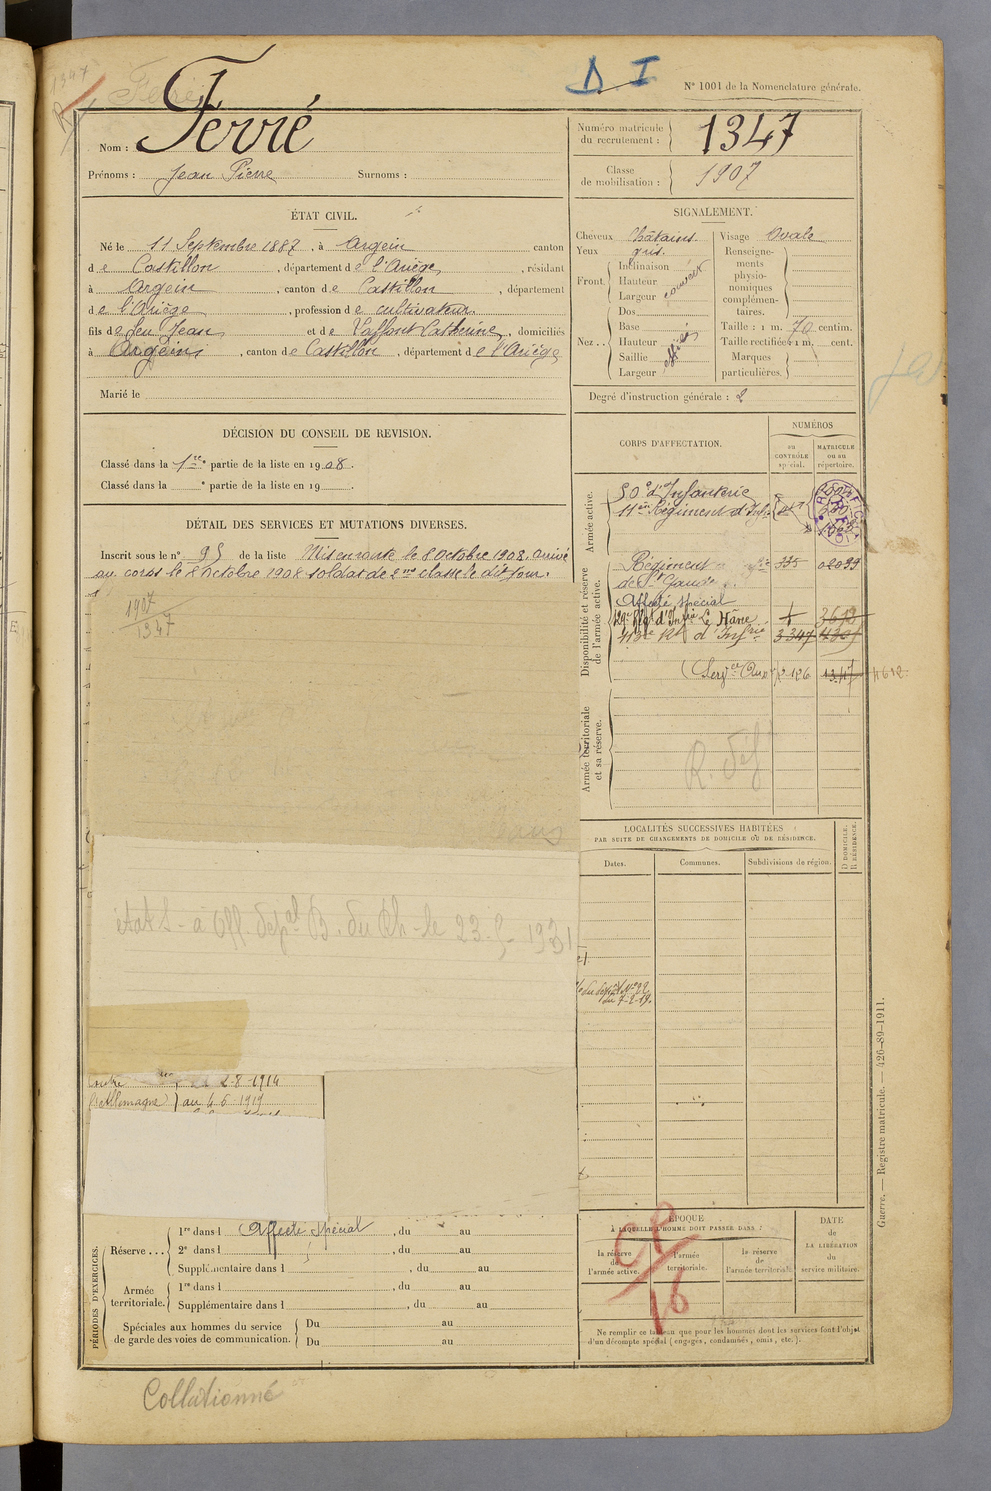 1347
D. I
N° 1001 de la Nomenclature générale.
Nom : Ferré
Prénoms : Jean Pierre Surnoms :
Numéro matricule du recrutement : 1347
Classe de mobilisation : 1907
ÉTAT CIVIL.
Né le 11 Septembre 1887, à Argein canton
de Castillon, département de l'Ariège, résidant
à Argein, canton de Castillon, département
de l'Ariège, profession de cultivateur
fils de feu Jean et de Laffont Catherine, domiciliés
à Argein, canton de Castillon, département de l'Ariège
Marié le
SIGNALEMENT.
Cheveux châtains Visage Ovale
Yeux gris.
Front. Inclinaison
Hauteur
Largeur
Nez.. Dos
Base
Hauteur
Saillie
Largeur
Renseignements physionomiques complémentaires.
Taille : 1 m. 70 centim.
Taille rectifiée : 1 m. cent.
Marques particulières.
Degré d'instruction générale : 2
DÉCISION DU CONSEIL DE REVISION.
Classé dans la 1re partie de la liste en 1908.
Classé dans la e partie de la liste en 19 .
DÉTAIL DES SERVICES ET MUTATIONS DIVERSES.
Inscrit sous le n° 95 de la liste Mis en route le 8 Octobre 1908, arrivé
au corps le 8 Octobre 1908 soldat de 2me classe le dit jour.
1907
1347
états - à Off. depal B. du Rh - le 23-5-1931
2-8-1914
Allemagne) au 4 6 1919
CORPS D'AFFECTATION.
NUMÉROS
au CONTRÔLE spécial.
MATRICULE ou au répertoire.
Armée active.
50e d'Infanterie
11em Régiment d'Inf
Disponibilité et réserve de l'armée active.
Régiment 335 02099
de St Gaudens
Affecté spécial
129e Régt d'Infie Le Hâvre
113e Rt d'Infrie 3347
Servce Auxre 1347 4612
Armée territoriale et sa réserve.
R. Déf
LOCALITÉS SUCCESSIVES HABITÉES
PAR SUITE DE CHANGEMENTS DE DOMICILE OU DE RÉSIDENCE.
Dates.
Communes.
Subdivisions de région.
D DOMICILE. R RÉSIDENCE.
du 7-2-19.
PÉRIODES D'EXERCICES.
Réserve ... 1re dans l Affecté spécial, du au
2e dans l , du au
Supplémentaire dans l , du au
Armée territoriale. 1re dans l , du au
Supplémentaire dans l , du au
Spéciales aux hommes du service de garde des voies de communication. Du au
Du au
ÉPOQUE
À LAQUELLE L'HOMME DOIT PASSER DANS :
la réserve de l'armée active.
l'armée territoriale.
la réserve de l'armée territoriale
DATE de LA LIBÉRATION du service militaire.
CP
16
Ne remplir ce tableau que pour les hommes dont les services font l'objet
d'un décompte spécial (engagés, condamnés, omis, etc.).
Guerre. — Registre matricule. — 426-89-1911.
Collationné